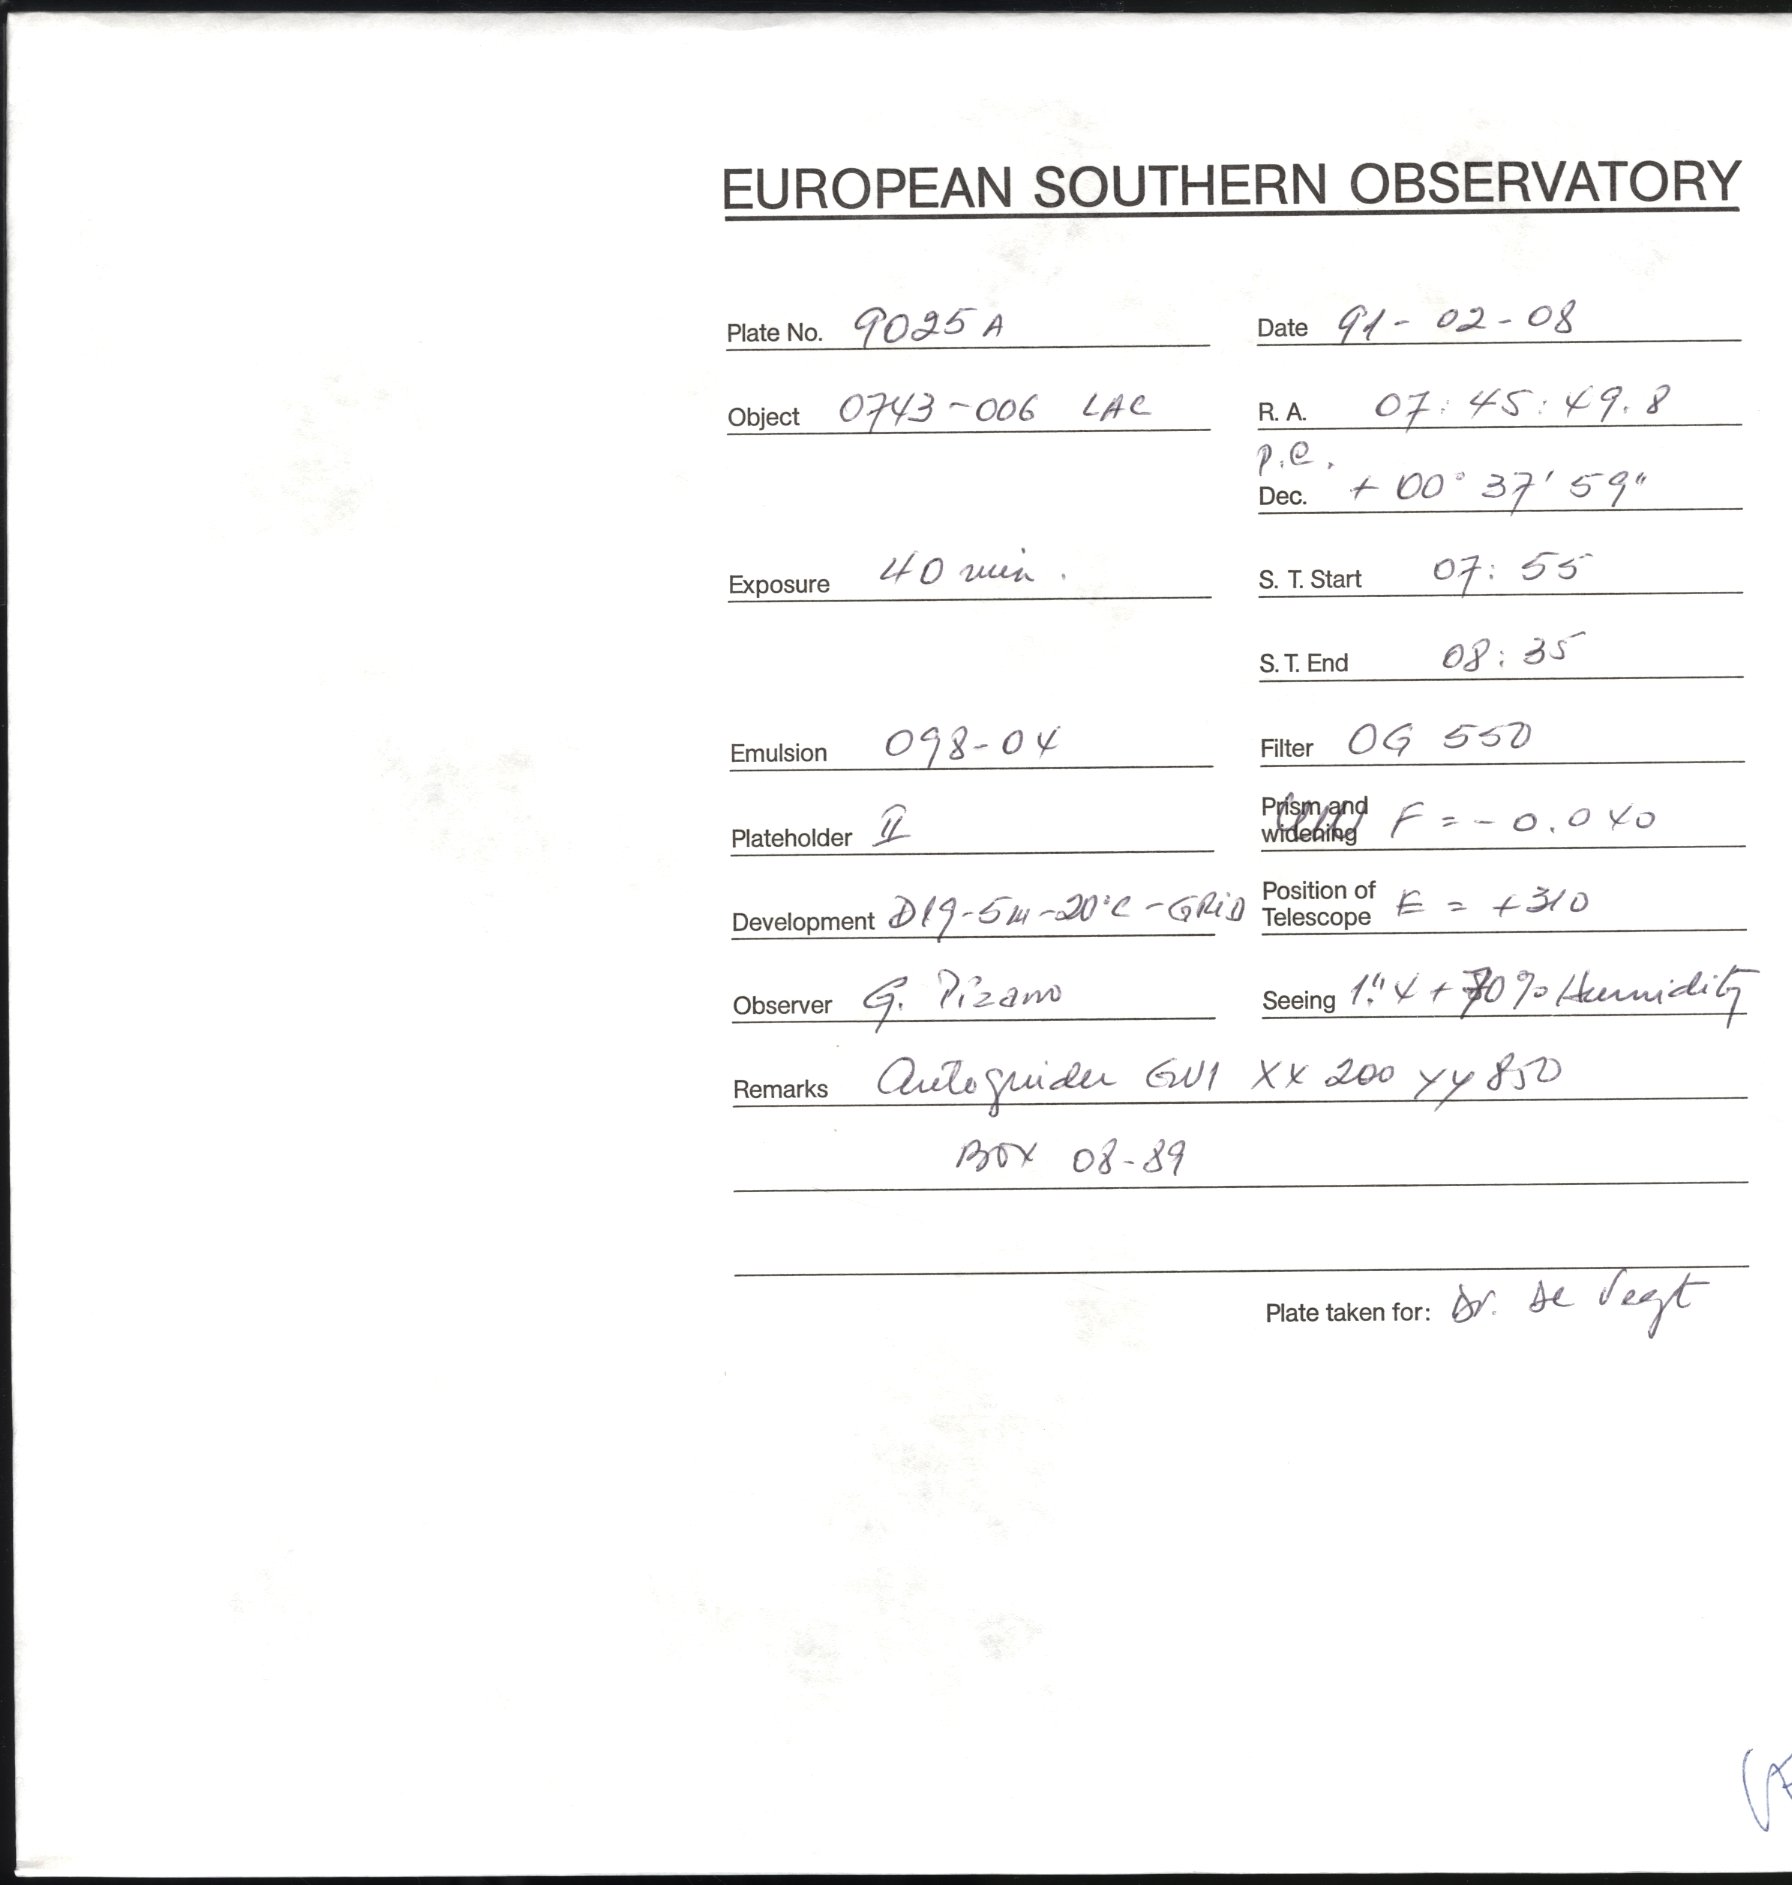 EUROPEAN SOUTHERN OBSERVATORY
Plate No. 9025 A
Date 91-02-08
Object 0743-006 LAC
R. A. 07:45:49.8
P.C.
Dec. +00° 37' 59"
Exposure 40 min.
S. T. Start 07:55
S. T. End 08:35
Emulsion 098-04
Filter OG 550
Plateholder II
Prism and
widening F = -0.040
Development D19-5m-20°C-GRID
Position of
Telescope E = +310
Observer G. Pizarro
Seeing 1."4 + 70% Humidity
Remarks Autoguider GW1 XX 200 YY 850
BOX 08-89
Plate taken for: Dr. De Vegt